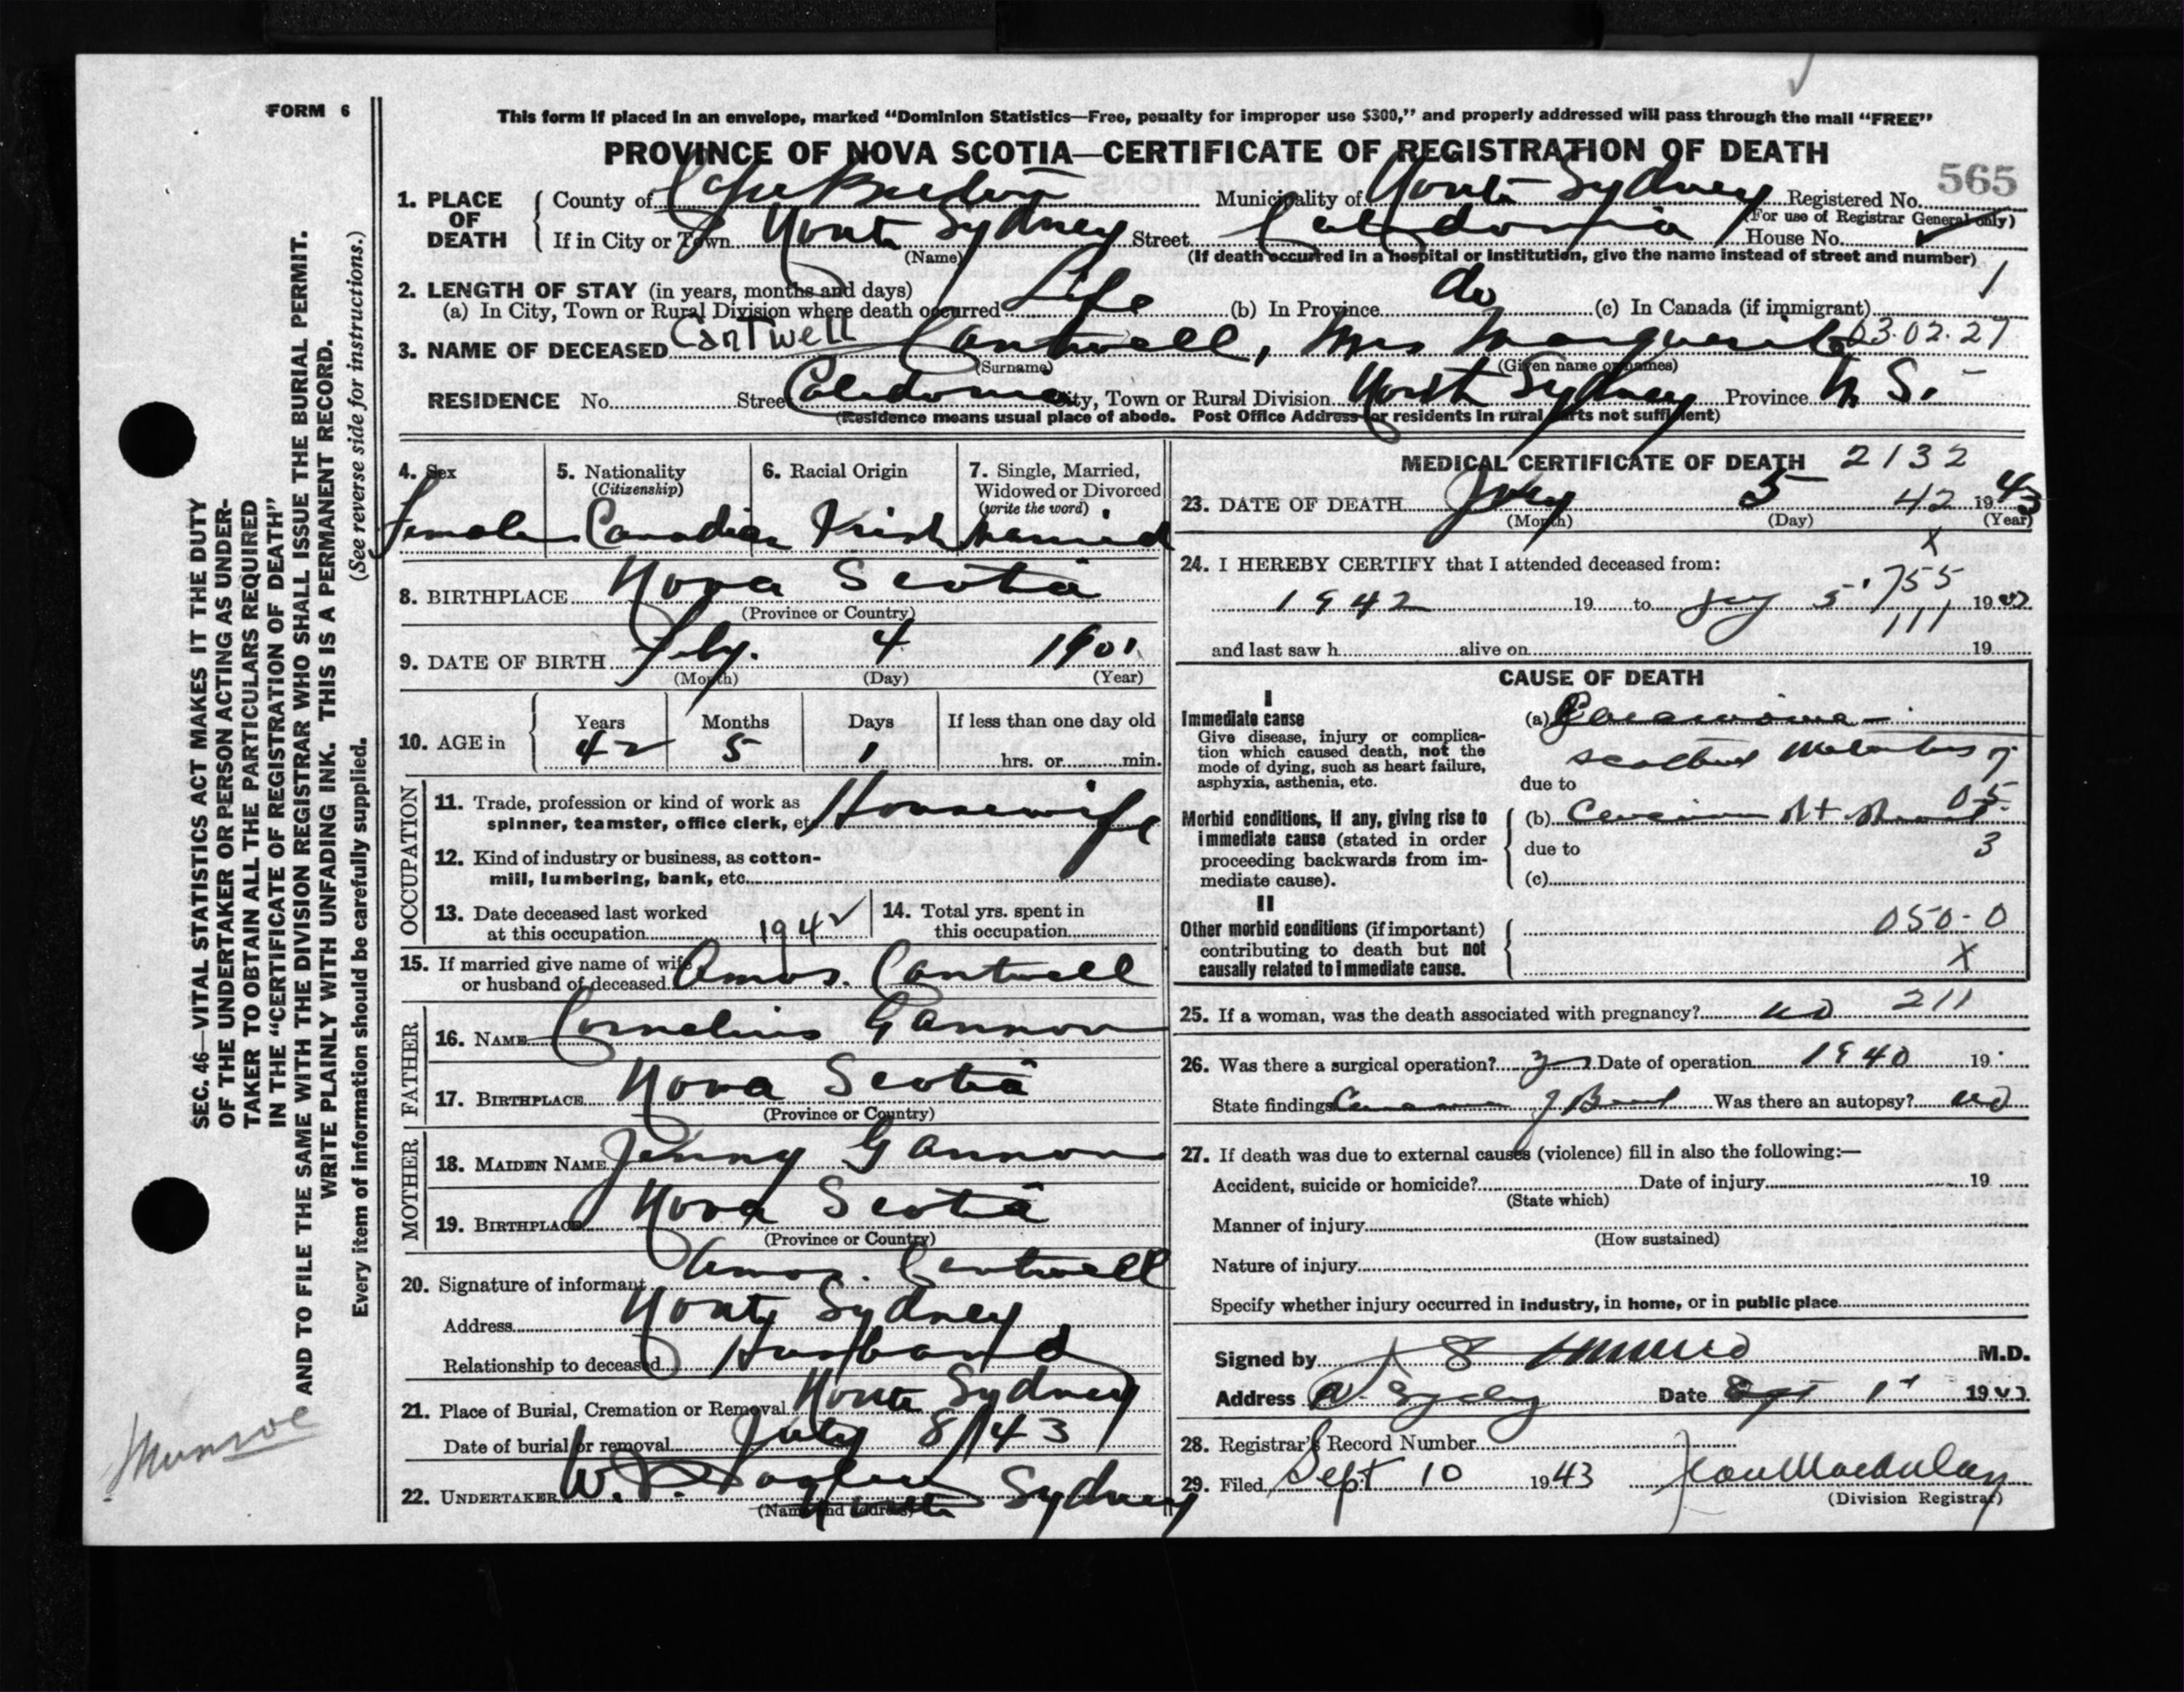 FORM 6
This form if placed in an envelope, marked “Dominion Statistics—Free, penalty for improper use $300,” and properly addressed will pass through the mail “FREE”
PROVINCE OF NOVA SCOTIA—CERTIFICATE OF REGISTRATION OF DEATH
565
1. PLACE OF DEATH
County of Cape Breton Municipality of North Sydney Registered No.
(For use of Registrar General only)
If in City or Town North Sydney Street Caledonia House No.
(Name)
(If death occurred in a hospital or institution, give the name instead of street and number)
2. LENGTH OF STAY (in years, months and days)
(a) In City, Town or Rural Division where death occurred Life (b) In Province do (c) In Canada (if immigrant) 1
3. NAME OF DECEASED Cantwell Cantwell, Mrs Marguerite 03.02.27
(Surname) (Given name or names)
RESIDENCE No. Street Caledonia City, Town or Rural Division North Sydney Province N S.
(Residence means usual place of abode. Post Office Address for residents in rural parts not sufficient)
4. Sex 5. Nationality (Citizenship) 6. Racial Origin 7. Single, Married, Widowed or Divorced (write the word)
Female Canadian Irish Married
8. BIRTHPLACE Nova Scotia
(Province or Country)
9. DATE OF BIRTH Feby. 4 1901
(Month) (Day) (Year)
10. AGE in Years Months Days If less than one day old
42 5 1 hrs. or min.
OCCUPATION
11. Trade, profession or kind of work as spinner, teamster, office clerk, etc. Housewife
12. Kind of industry or business, as cotton-
mill, lumbering, bank, etc.
13. Date deceased last worked
at this occupation 1942
14. Total yrs. spent in
this occupation
15. If married give name of wife
or husband of deceased Amos. Cantwell
FATHER
16. NAME Cornelius Gannon
17. BIRTHPLACE Nova Scotia
(Province or Country)
MOTHER
18. MAIDEN NAME Jenny Gannon
19. BIRTHPLACE Nova Scotia
(Province or Country)
20. Signature of informant Amos. Cantwell
Address North Sydney
Relationship to deceased Husband
21. Place of Burial, Cremation or Removal North Sydney
Date of burial or removal July 8/43
22. UNDERTAKER W. North Sydney
(Name and address)
MEDICAL CERTIFICATE OF DEATH 2132
23. DATE OF DEATH July 5 42 1943
(Month) (Day) (Year)
X
24. I HEREBY CERTIFY that I attended deceased from:
1942 19 to July 5 755 19
111
and last saw h alive on 19
CAUSE OF DEATH
I
Immediate cause
Give disease, injury or complica-
tion which caused death, not the
mode of dying, such as heart failure,
asphyxia, asthenia, etc.
(a) Carcinoma
due to
05
Morbid conditions, if any, giving rise to
immediate cause (stated in order
proceeding backwards from im-
mediate cause).
(b) Rt Breast
due to 3
(c)
II
Other morbid conditions (if important)
contributing to death but not
causally related to immediate cause.
050-0
X
25. If a woman, was the death associated with pregnancy? no 211
26. Was there a surgical operation? Date of operation 1940 19
State findings Breast Was there an autopsy? no
27. If death was due to external causes (violence) fill in also the following:—
Accident, suicide or homicide? Date of injury 19
(State which)
Manner of injury
(How sustained)
Nature of injury
Specify whether injury occurred in industry, in home, or in public place
Signed by M.D.
Address N. Sydney Date Sept 1st 19
28. Registrar's Record Number
29. Filed Sept 10 1943
(Division Registrar)
SEC. 46—VITAL STATISTICS ACT MAKES IT THE DUTY
OF THE UNDERTAKER OR PERSON ACTING AS UNDER-
TAKER TO OBTAIN ALL THE PARTICULARS REQUIRED
IN THE “CERTIFICATE OF REGISTRATION OF DEATH”
AND TO FILE THE SAME WITH THE DIVISION REGISTRAR WHO SHALL ISSUE THE BURIAL PERMIT.
WRITE PLAINLY WITH UNFADING INK. THIS IS A PERMANENT RECORD.
Every item of information should be carefully supplied. (See reverse side for instructions.)
Munroe